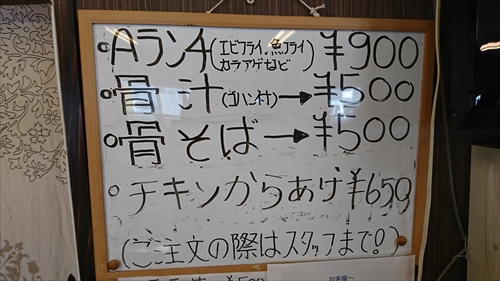 ○Aランチ(エビフライ、魚フライ カラアゲなど)¥900
○骨汁(ゴハン付)→¥500
○骨そば→¥500
○チキンからあげ¥650
(ご注文の際はスタッフまで!)
お客様へ